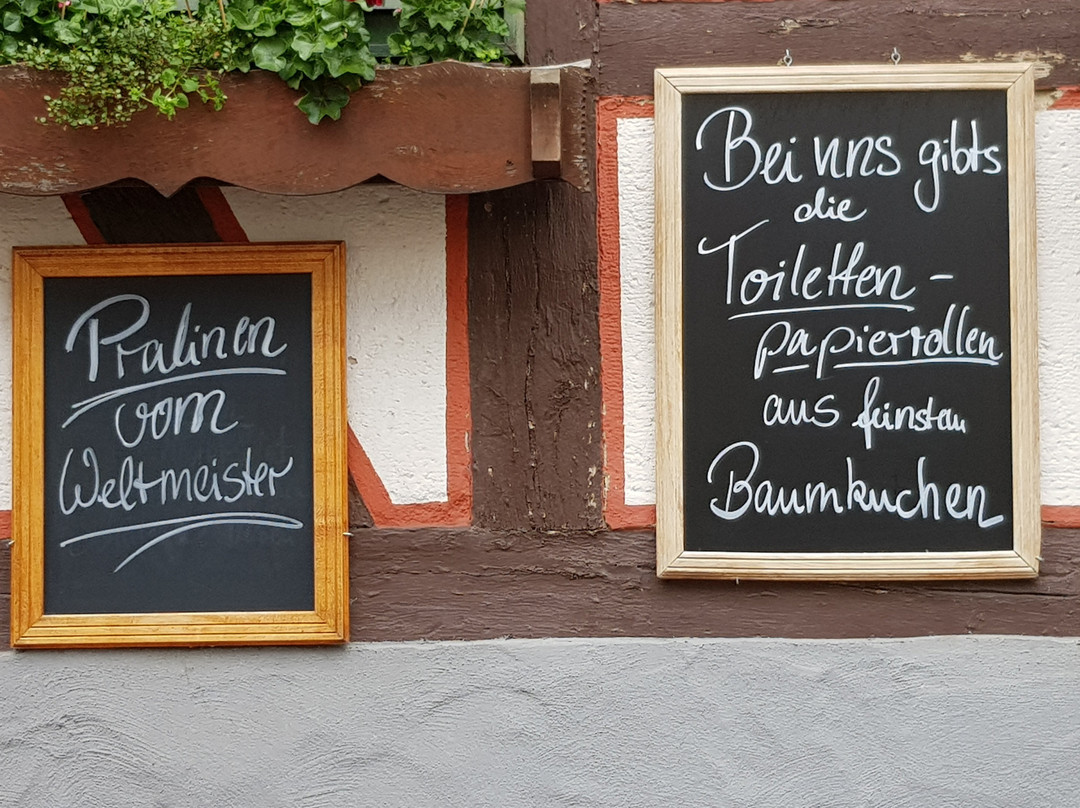 Pralinen
vom
Weltmeister
Bei uns gibts
die
Toiletten-
papierrollen
aus feinstem
Baumkuchen